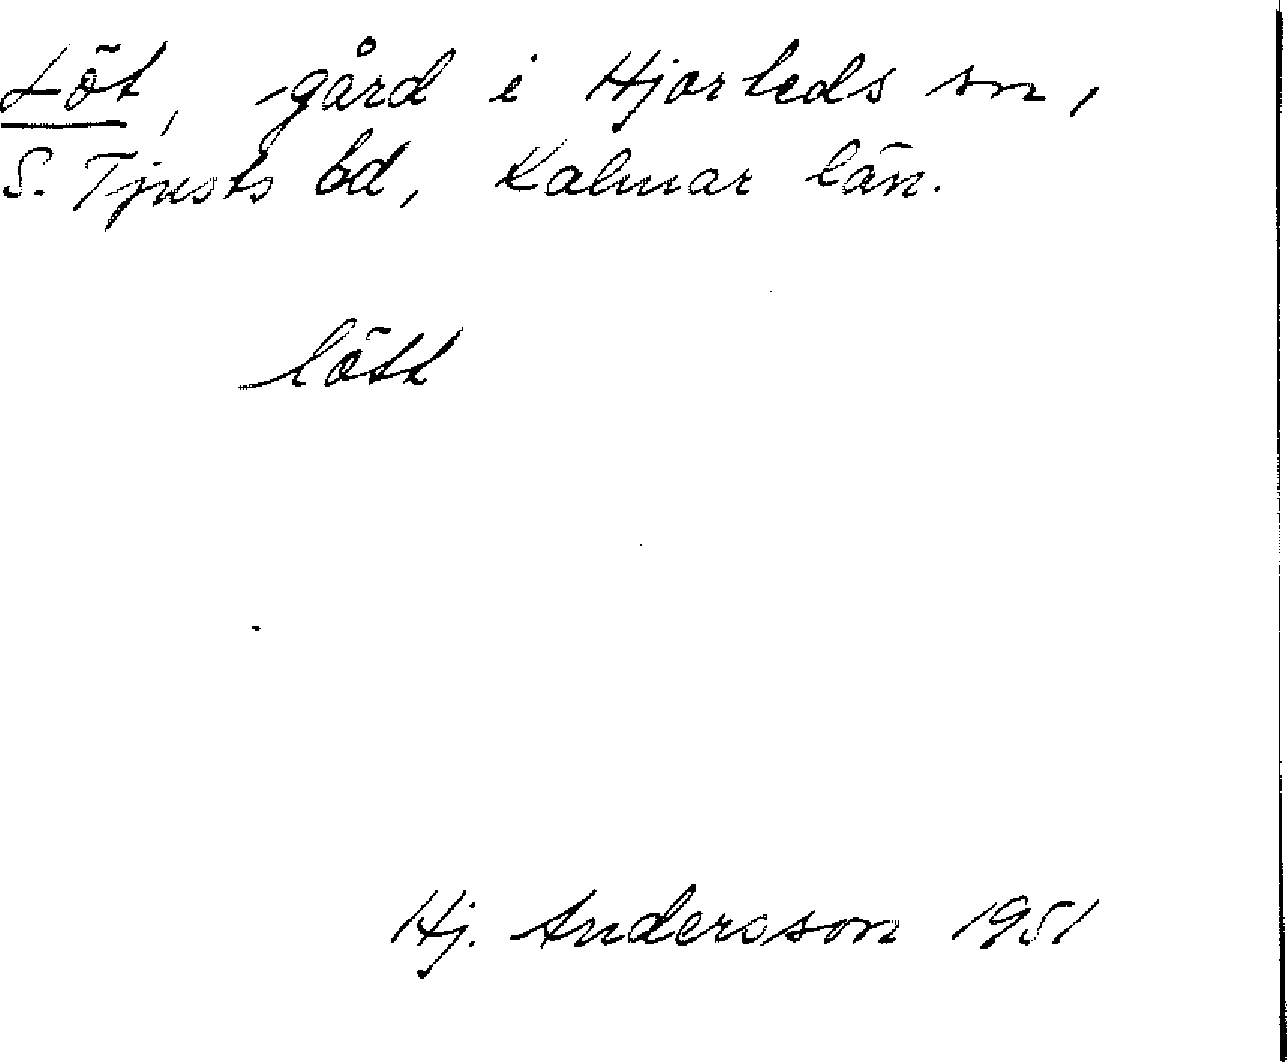 Löt, gård i Hjorteds sn,
S. Tjusts hd, Kalmar län.
lött
Hj. Andersson 1951